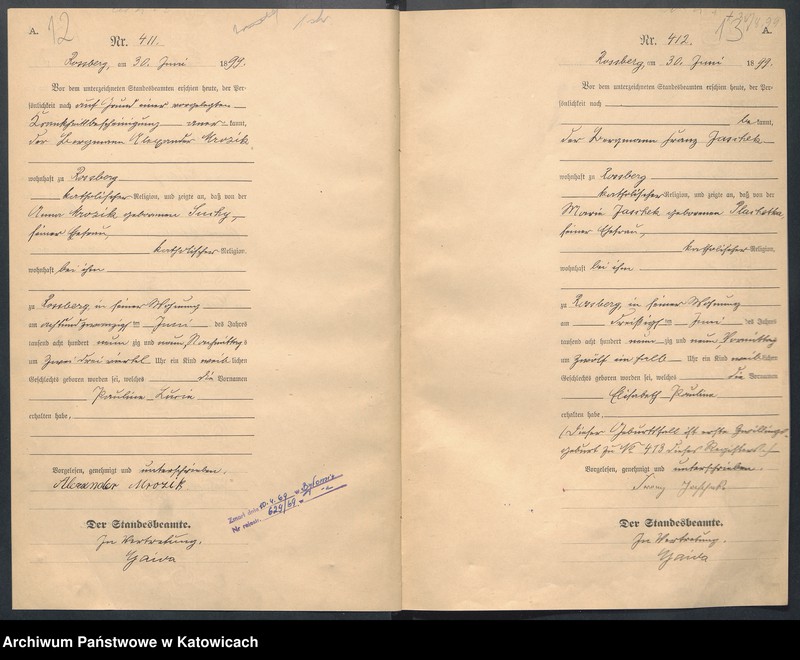 A.
12
Nr. 411.
Rossberg, am 30. Juni 1899.
Vor dem unterzeichneten Standesbeamten erschien heute, der Per-
sönlichkeit nach auf Grund einer vorgelegten
Krankheitsbescheinigung aner-kannt,
der Bergmann Alexander Mrozik
wohnhaft zu Rossberg
katholischer Religion, und zeigte an, daß von der
Anna Mrozik geborenen
seiner Ehefrau,
katholischer Religion,
wohnhaft bei ihm
zu Rossberg, in seiner Wohnung
am achtundzwanzigsten Juni des Jahres
tausend acht hundert neunzig und neun, Nachmittags
um zwei drei viertel Uhr ein Kind weiblichen
Geschlechts geboren worden sei, welches die Vornamen
Pauline Lucie
erhalten habe,
Vorgelesen, genehmigt und unterschrieben.
Alexander Mrozik
Der Standesbeamte.
In Vertretung.
Gaida
Zmarł dnia 10.4.69 w Bytomiu
Nr 629/69
A.
13
Nr. 412.
Rossberg, am 30. Juni 1899.
Vor dem unterzeichneten Standesbeamten erschien heute, der Per-
sönlichkeit nach
bekannt,
der Bergmann Franz Jaschek
wohnhaft zu Rossberg
katholischer Religion, und zeigte an, daß von der
Marie Jaschek geborenen
seiner Ehefrau,
katholischer Religion,
wohnhaft bei ihm
zu Rossberg, in seiner Wohnung
am dreißigsten Juni des Jahres
tausend acht hundert neunzig und neun, Vormittags
um zwölf ein halb Uhr ein Kind weiblichen
Geschlechts geboren worden sei, welches die Vornamen
Elisabeth Pauline
erhalten habe,
(Dieser Geburtsfall ist erste Zwillings-
geburt zu No 413 dieses Registers.)
Vorgelesen, genehmigt und unterschrieben.
Franz Jaschek
Der Standesbeamte.
In Vertretung.
Gaida
Archiwum Państwowe w Katowicach